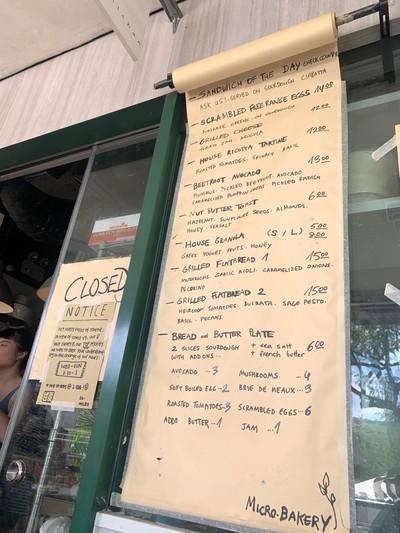 - SANDWICH OF THE DAY CHECK COUNTER
ASK US! SERVED ON SOURDOUGH CIABATTA
- SCRAMBLED FREE RANGE EGGS 14.00
SUMMER GREENS ON SOURDOUGH
- GRILLED CHEESE 12.00
ARUGULA
- HOUSE RICOTTA TARTINE 12.00
ROASTED TOMATOES, BASIL
- BEETROOT AVOCADO 13.00
HUMMUS, PICKLED BEETROOT, AVOCADO
CARAMELISED PUMPKIN SEEDS, PICKLED RADISH
- NUT BUTTER TOAST 6.00
HAZELNUT, SUNFLOWER SEEDS, ALMONDS,
HONEY, SEASALT
- HOUSE GRANOLA (S / L) 5.00
8.00
GREEK YOGURT, FRUITS, HONEY
- GRILLED FLATBREAD 1 15.00
MUSHROOMS, GARLIC AIOLI, CARAMELIZED ONIONS,
PECORINO
- GRILLED FLATBREAD 2 15.00
HEIRLOOM TOMATOES, BURRATA, SAGE PESTO,
BASIL, PECANS
- BREAD AND BUTTER PLATE
2 SLICES SOURDOUGH + sea salt 6.00
WITH ADD ONS... + french butter
AVOCADO ...3 MUSHROOMS ...4
SOFT BOILED EGG...2 BRIE DE MEAUX...3
ROASTED TOMATOES...3 SCRAMBLED EGGS...6
ADD BUTTER ...1 JAM ...1
MICRO.BAKERY
CLOSED
NOTICE
WED-SUN